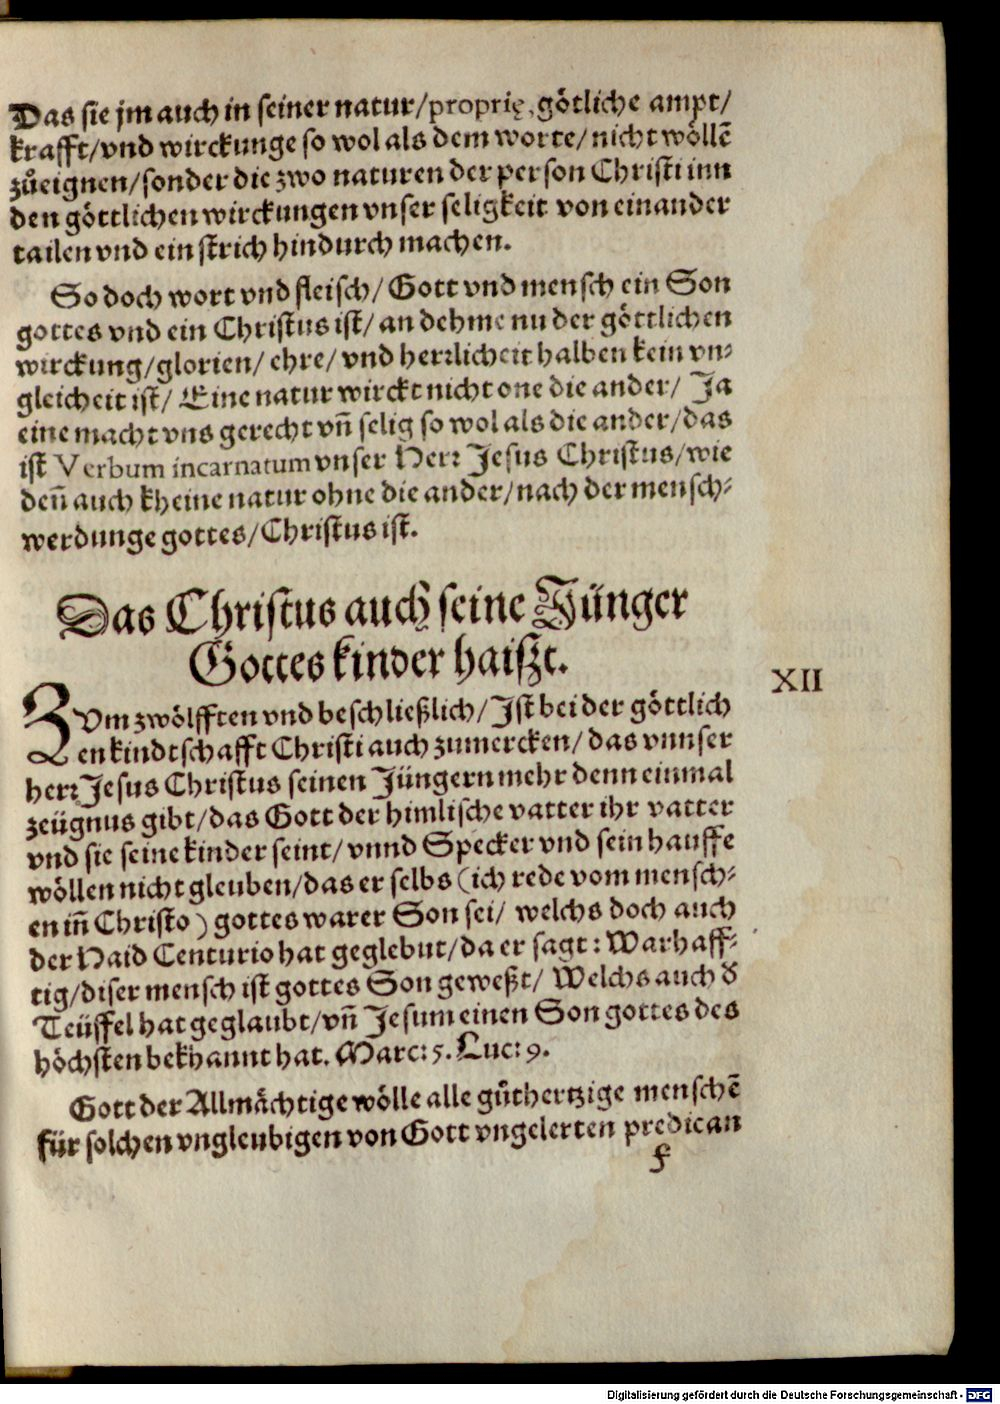 Das sie jm auch in seiner natur/proprię, götliche ampt/
krafft/vnd wirckunge so wol als dem worte/nicht wöllē
zůeignen/sonder die zwo naturen der person Christi inn
den göttlichen wirckungen vnser seligkeit von einander
tailen vnd ein strich hindurch machen.
So doch wort vnd fleisch/Gott vnd mensch ein Son
gottes vnd ein Christus ist/an dehme nu der göttlichen
wirckung/glorien/ehre/vnd herrlicheit halben kein vn-
gleicheit ist/Eine natur wirckt nicht one die ander/Ja
eine macht vns gerecht vñ selig so wol als die ander/das
ist Verbum incarnatum vnser Herr Jesus Christus/wie
deñ auch kheine natur ohne die ander/nach der mensch-
werdunge gottes/Christus ist.
Das Christus auch seine Jünger
Gottes kinder haiszt.
XII
ZVm zwölfften vnd beschließlich/Jst bei der göttlich
en kindtschafft Christi auch zumercken/das vnnser
herr Jesus Christus seinen Jüngern mehr denn einmal
zeügnus gibt/das Gott der himlische vatter ihr vatter
vnd sie seine kinder seint/vnnd Specker vnd sein hauffe
wöllen nicht gleuben/das er selbs (ich rede vom mensch-
en iñ Christo) gottes warer Son sei/welchs doch auch
der Haid Centurio hat geglebut/da er sagt: Warhaff-
tig/diser mensch ist gottes Son geweßt/Welchs auch đ
Teüffel hat geglaubt/vñ Jesum einen Son gottes des
höchsten bekhannt hat. Marc: 5. Luc: 9.
Gott der Allmächtige wölle alle gůthertzige menschē
für solchen vngleubigen von Gott vngelerten predican
f
Digitalisierung gefördert durch die Deutsche Forschungsgemeinschaft - DFG